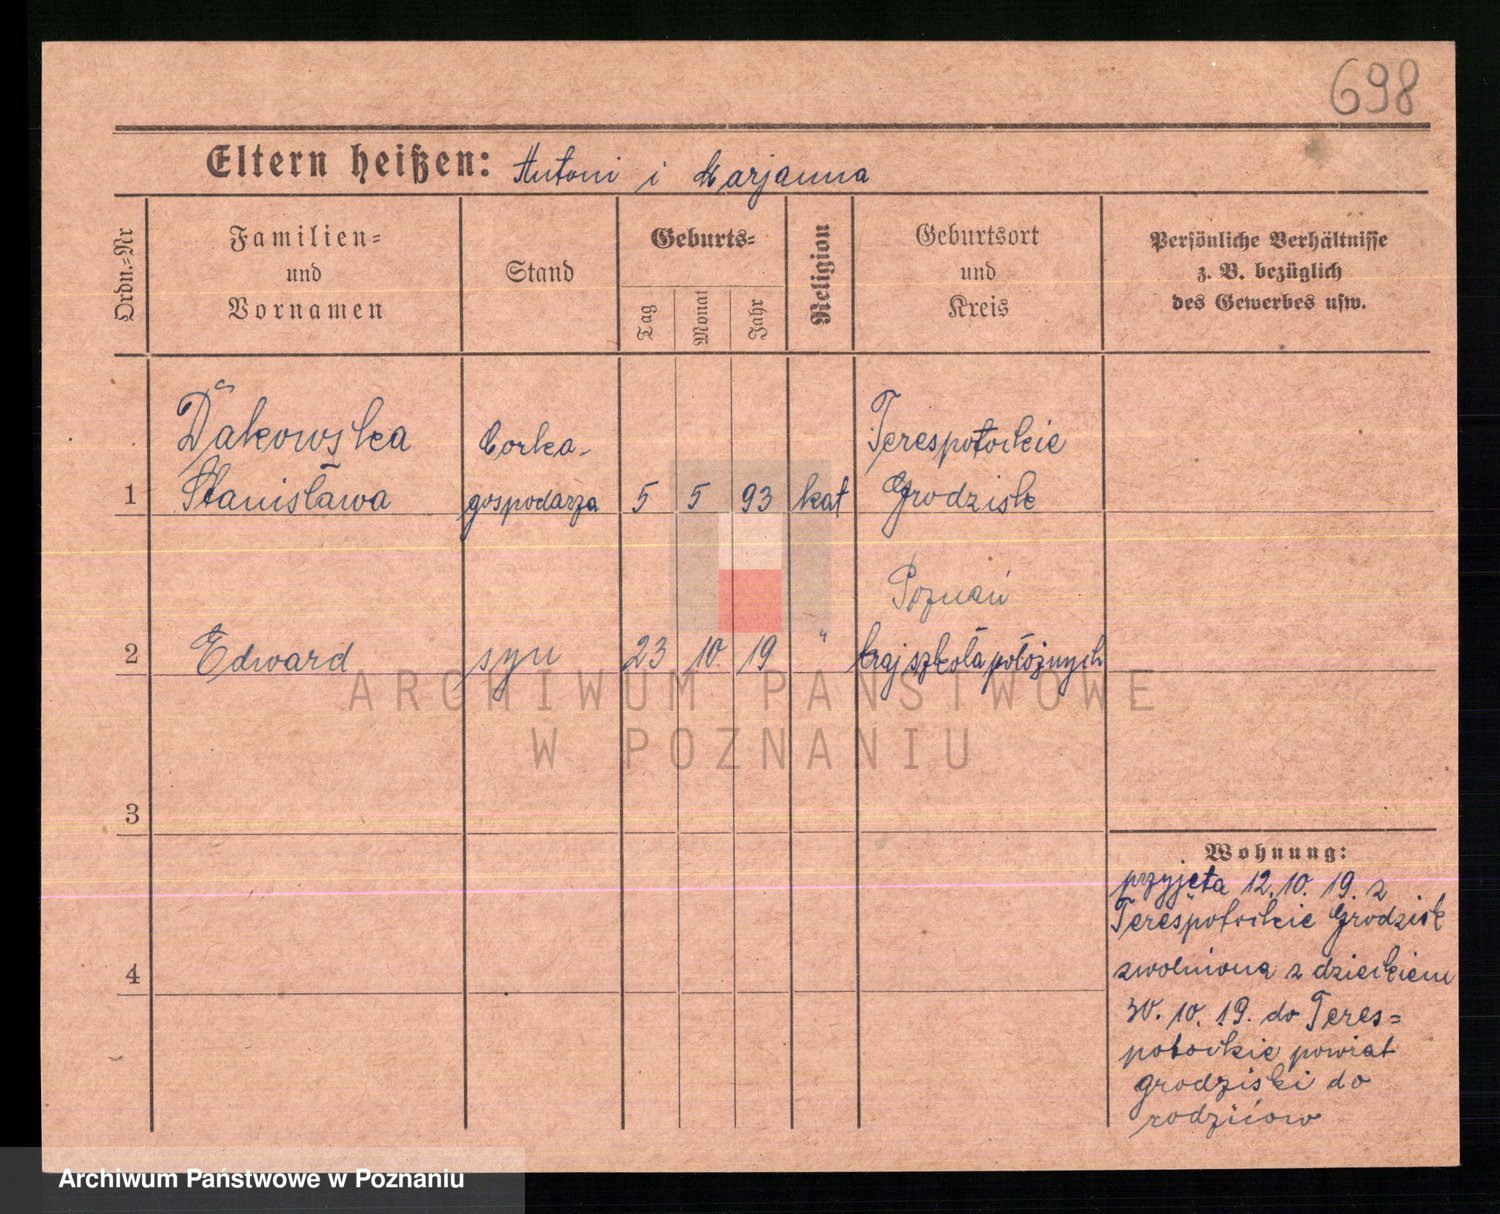 698
Eltern heißen: Antoni i Marjanna
Ordn.-Nr
Familien-
und
Vornamen
Stand
Geburts-
Tag
Monat
Jahr
Religion
Geburtsort
und
Kreis
Persönliche Verhältnisse
z. B. bezüglich
des Gewerbes usw.
Żakowska Corka Terespotockie
1 Stanisława gospodarza 5 5 93 kat Grodzisk
Poznań
2 Edward syn 23 10. 19 " kraj szkoła położnych
3
4
Wohnung:
przyjęta 12.10. 19. z
Terespotockie Grodzisk
zwolniona z dzieckiem
30. 10. 19. do Teres=
potockie powiat
grodziski do
rodziców
ARCHIWUM PAŃSTWOWE
W POZNANIU
Archiwum Państwowe w Poznaniu